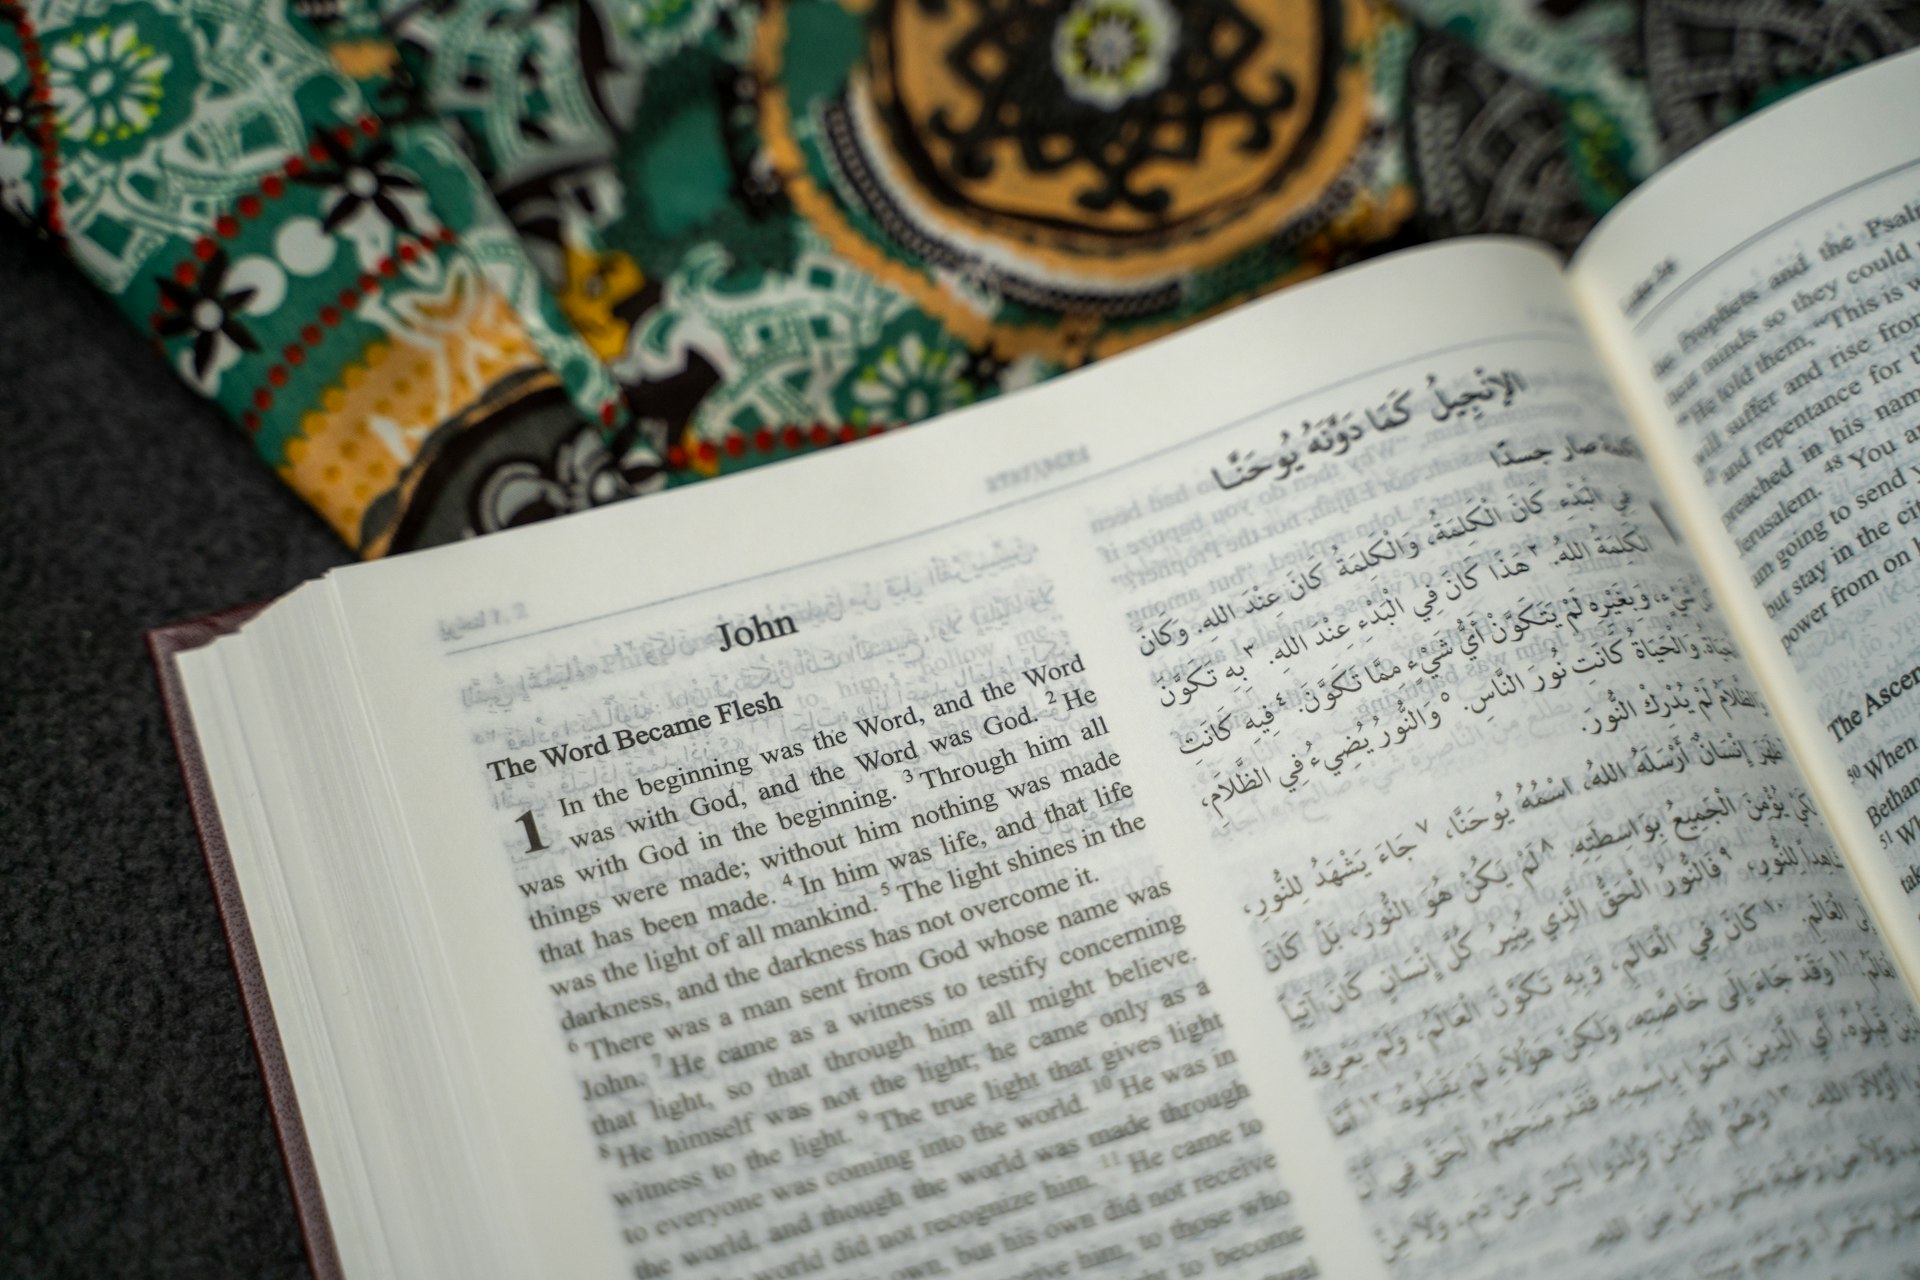 John
The Word Became Flesh
1 In the beginning was the Word, and the Word
was with God, and the Word was God. 2 He
was with God in the beginning. 3 Through him all
things were made; without him nothing was made
that has been made. 4 In him was life, and that life
was the light of all mankind. 5 The light shines in the
darkness, and the darkness has not overcome it.
6 There was a man sent from God whose name was
John. 7 He came as a witness to testify concerning
that light, so that through him all might believe.
8 He himself was not the light; he came only as a
witness to the light. 9 The true light that gives light
to everyone was coming into the world. 10 He was in
the world, and though the world was made through
world did not recognize him. 11 He came to
own, but his own did not receive
him, to those who
to become
الإنْجِيلُ كَمَا دَوَّنَهُ يُوحَنَّا
صار جسدًا
فِي الْبَدْءِ كَانَ الْكَلِمَةُ، وَالْكَلِمَةُ كَانَ عِنْدَ اللهِ. وَكَانَ
الْكَلِمَةُ اللهَ. ٢ هَذَا كَانَ فِي الْبَدْءِ عِنْدَ اللهِ. ٣ بِهِ تَكَوَّنَ
شَيْءٍ، وَبِغَيْرِهِ لَمْ يَتَكَوَّنْ أَيُّ شَيْءٍ مِمَّا تَكَوَّنَ. ٤ فِيهِ كَانَتِ
الْحَيَاةُ. وَالْحَيَاةُ كَانَتْ نُورَ النَّاسِ. ٥ وَالنُّورُ يُضِيءُ فِي الظَّلَامِ،
وَالظَّلَامُ لَمْ يُدْرِكْ النُّورَ.
ظَهَرَ إِنْسَانٌ أَرْسَلَهُ اللهُ، اسْمُهُ يُوحَنَّا، ٧ جَاءَ يَشْهَدُ لِلنُّورِ،
يُؤْمِنَ الْجَمِيعُ بِوَاسِطَتِهِ. ٨ لَمْ يَكُنْ هُوَ النُّورَ، بَلْ كَانَ
شَاهِداً لِلنُّورِ، ٩ فَالنُّورُ الْحَقُّ الَّذِي يُنِيرُ كُلَّ إِنْسَانٍ كَانَ آتِياً
الْعَالَمِ. ١٠ كَانَ فِي الْعَالَمِ، وَبِهِ تَكَوَّنَ الْعَالَمُ، وَلَمْ يَعْرِفْهُ
الْعَالَمُ. ١١ وَقَدْ جَاءَ إِلَى خَاصَّتِهِ، وَلكِنَّ هَؤُلَاءِ لَمْ يَقْبَلُوهُ. ١٢ أَمَّا
قَبِلُوهُ، أَيِ الَّذِينَ آمَنُوا بِاسْمِهِ، فَقَدْ مَنَحَهُمُ الْحَقَّ فِي أَنْ
أَوْلَادَ اللهِ، ١٣ وَهُمُ الَّذِينَ وُلِدُوا لَيْسَ مِنْ دَمٍ، وَلَا مِنْ
Prophets and the Psalms
minds so they could
He told them, "This is
will suffer and rise from
and repentance for
preached in his name
Jerusalem. 48 You are
am going to send
but stay in the city
power from on
The Ascen
50 When
Bethan
51 Wh